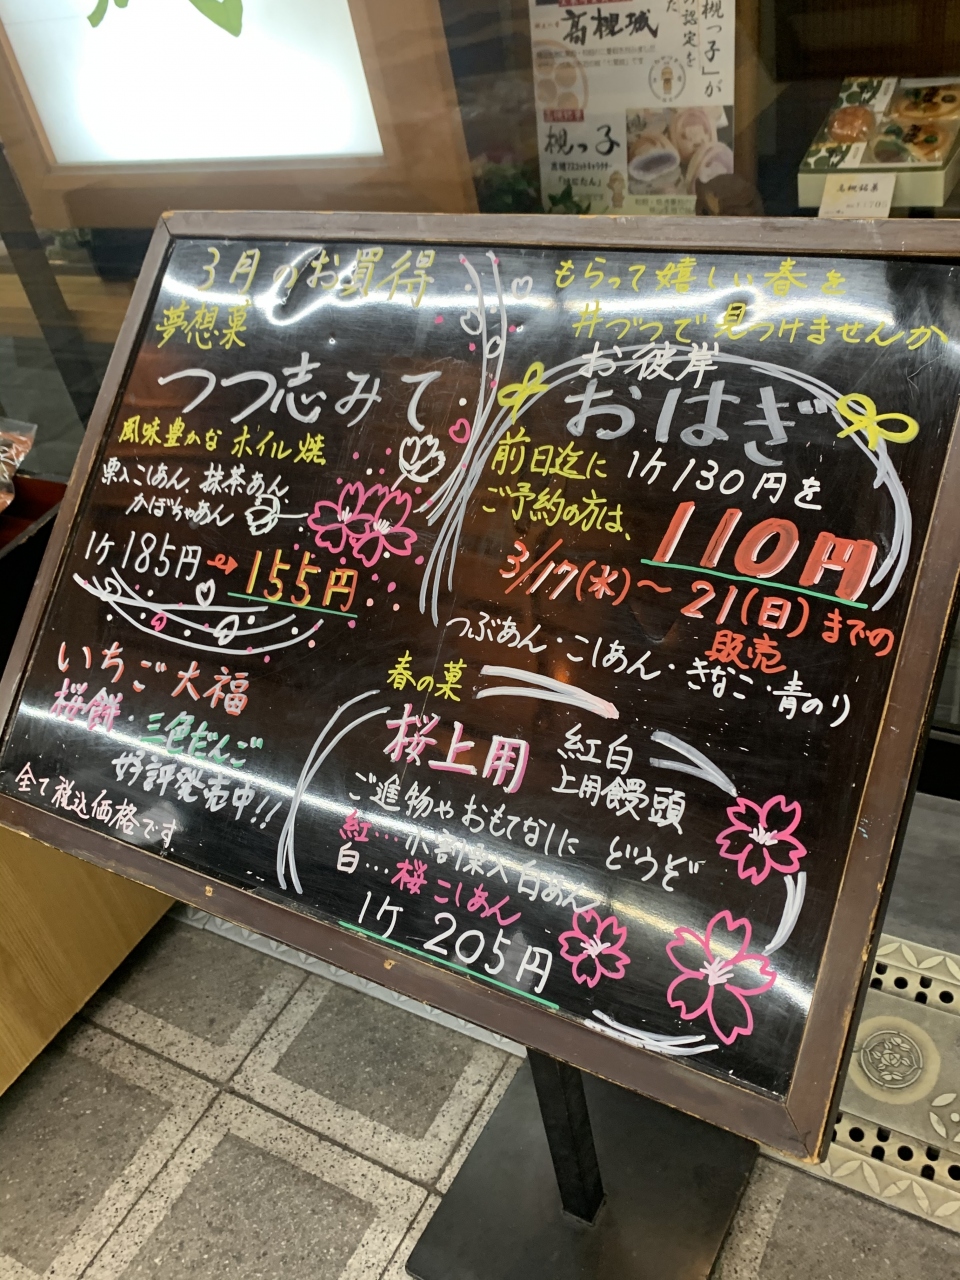 高槻城
槻っ子」が
認定を
高槻銘菓
槻っ子
高槻マスコットキャラクター
「はにたん」
高槻銘菓
3月のお買得
夢想菓
つつ志みて
風味豊かなホイル焼
栗入こしあん、抹茶あん、
かぼちゃあん
1ケ185円→155円
いちご大福
桜餅・三色だんご
好評発売中!!
全て税込価格です
もらって嬉しい春を
井づつで見つけませんか
お彼岸
おはぎ
前日迄に
ご予約の方は、
1ケ130円を
110円
3/17(水)～21(日)までの
販売
つぶあん・こしあん・きなこ・青のり
春の菓
桜上用
紅白
上用饅頭
ご進物やおもてなしに どうぞ
紅…小割栗入白あん
白…桜こしあん
1ケ 205円